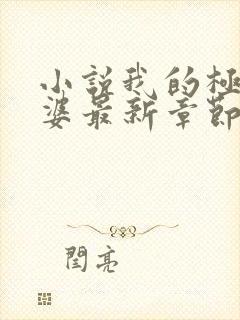 小説我的極
婆最新章節
閆亮